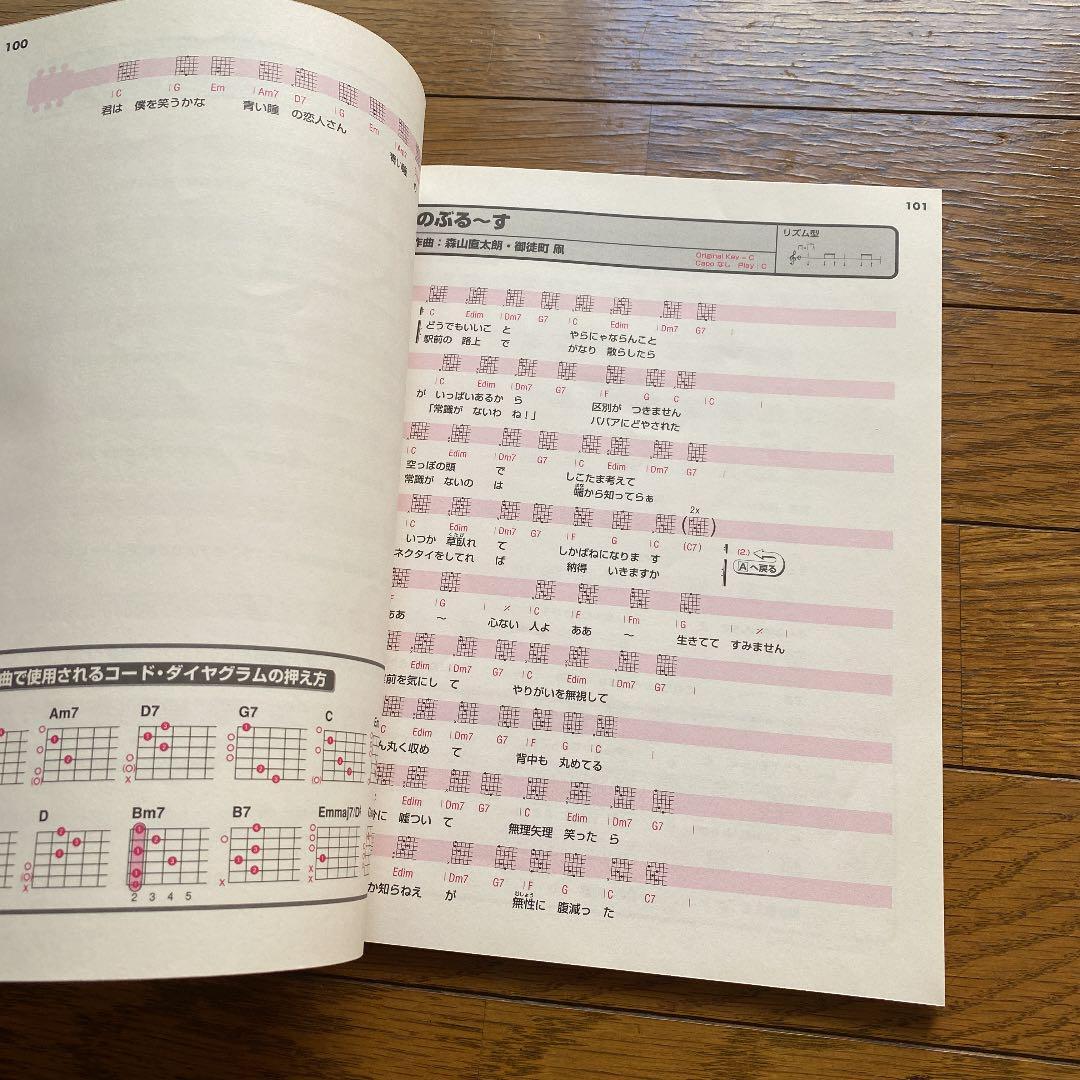 100
C G Em Am7 D7 G Em Am7
君は 僕を笑うかな 青い瞳 の恋人さん
青い瞳
曲で使用されるコード・ダイヤグラムの押え方
Am7 D7 G7 C
D Bm7 B7 Emmaj7/D♯
2 3 4 5
101
のぶる〜す
作曲：森山直太朗・御徒町 凧
リズム型
Original Key = C
Capo なし Play : C
C Edim Dm7 G7 C Edim Dm7 G7
どうでもいいこ と やらにゃならんこと
駅前の 路上 で がなり 散らしたら
C Edim Dm7 G7 F G C C
が いっぱいあるか ら 区別が つきません
「常識が ないわ ね！」 ババアにどやされた
C Edim Dm7 G7 C Edim Dm7 G7
空っぽの頭 で しこたま考えて
常識が ないの は 端から知ってらぁ
2x
C Edim Dm7 G7 F G C (C7)
いつか 草臥れ て しかばねになりま す
ネクタイをしてれ ば 納得 いきますか
(2.)
Aへ戻る
F G C F Fm G
ああ 〜 心ない 人よ ああ 〜 生きてて すみません
Edim Dm7 G7 C Edim Dm7 G7
前を気にし て やりがいを無視して
C Edim Dm7 G7 F G C
ん丸く収め て 背中も 丸めてる
Edim Dm7 G7 C Edim Dm7 G7
に 嘘つい て 無理矢理 笑った ら
Edim Dm7 G7 F G C C7
か知らねえ が 無性に 腹減っ た